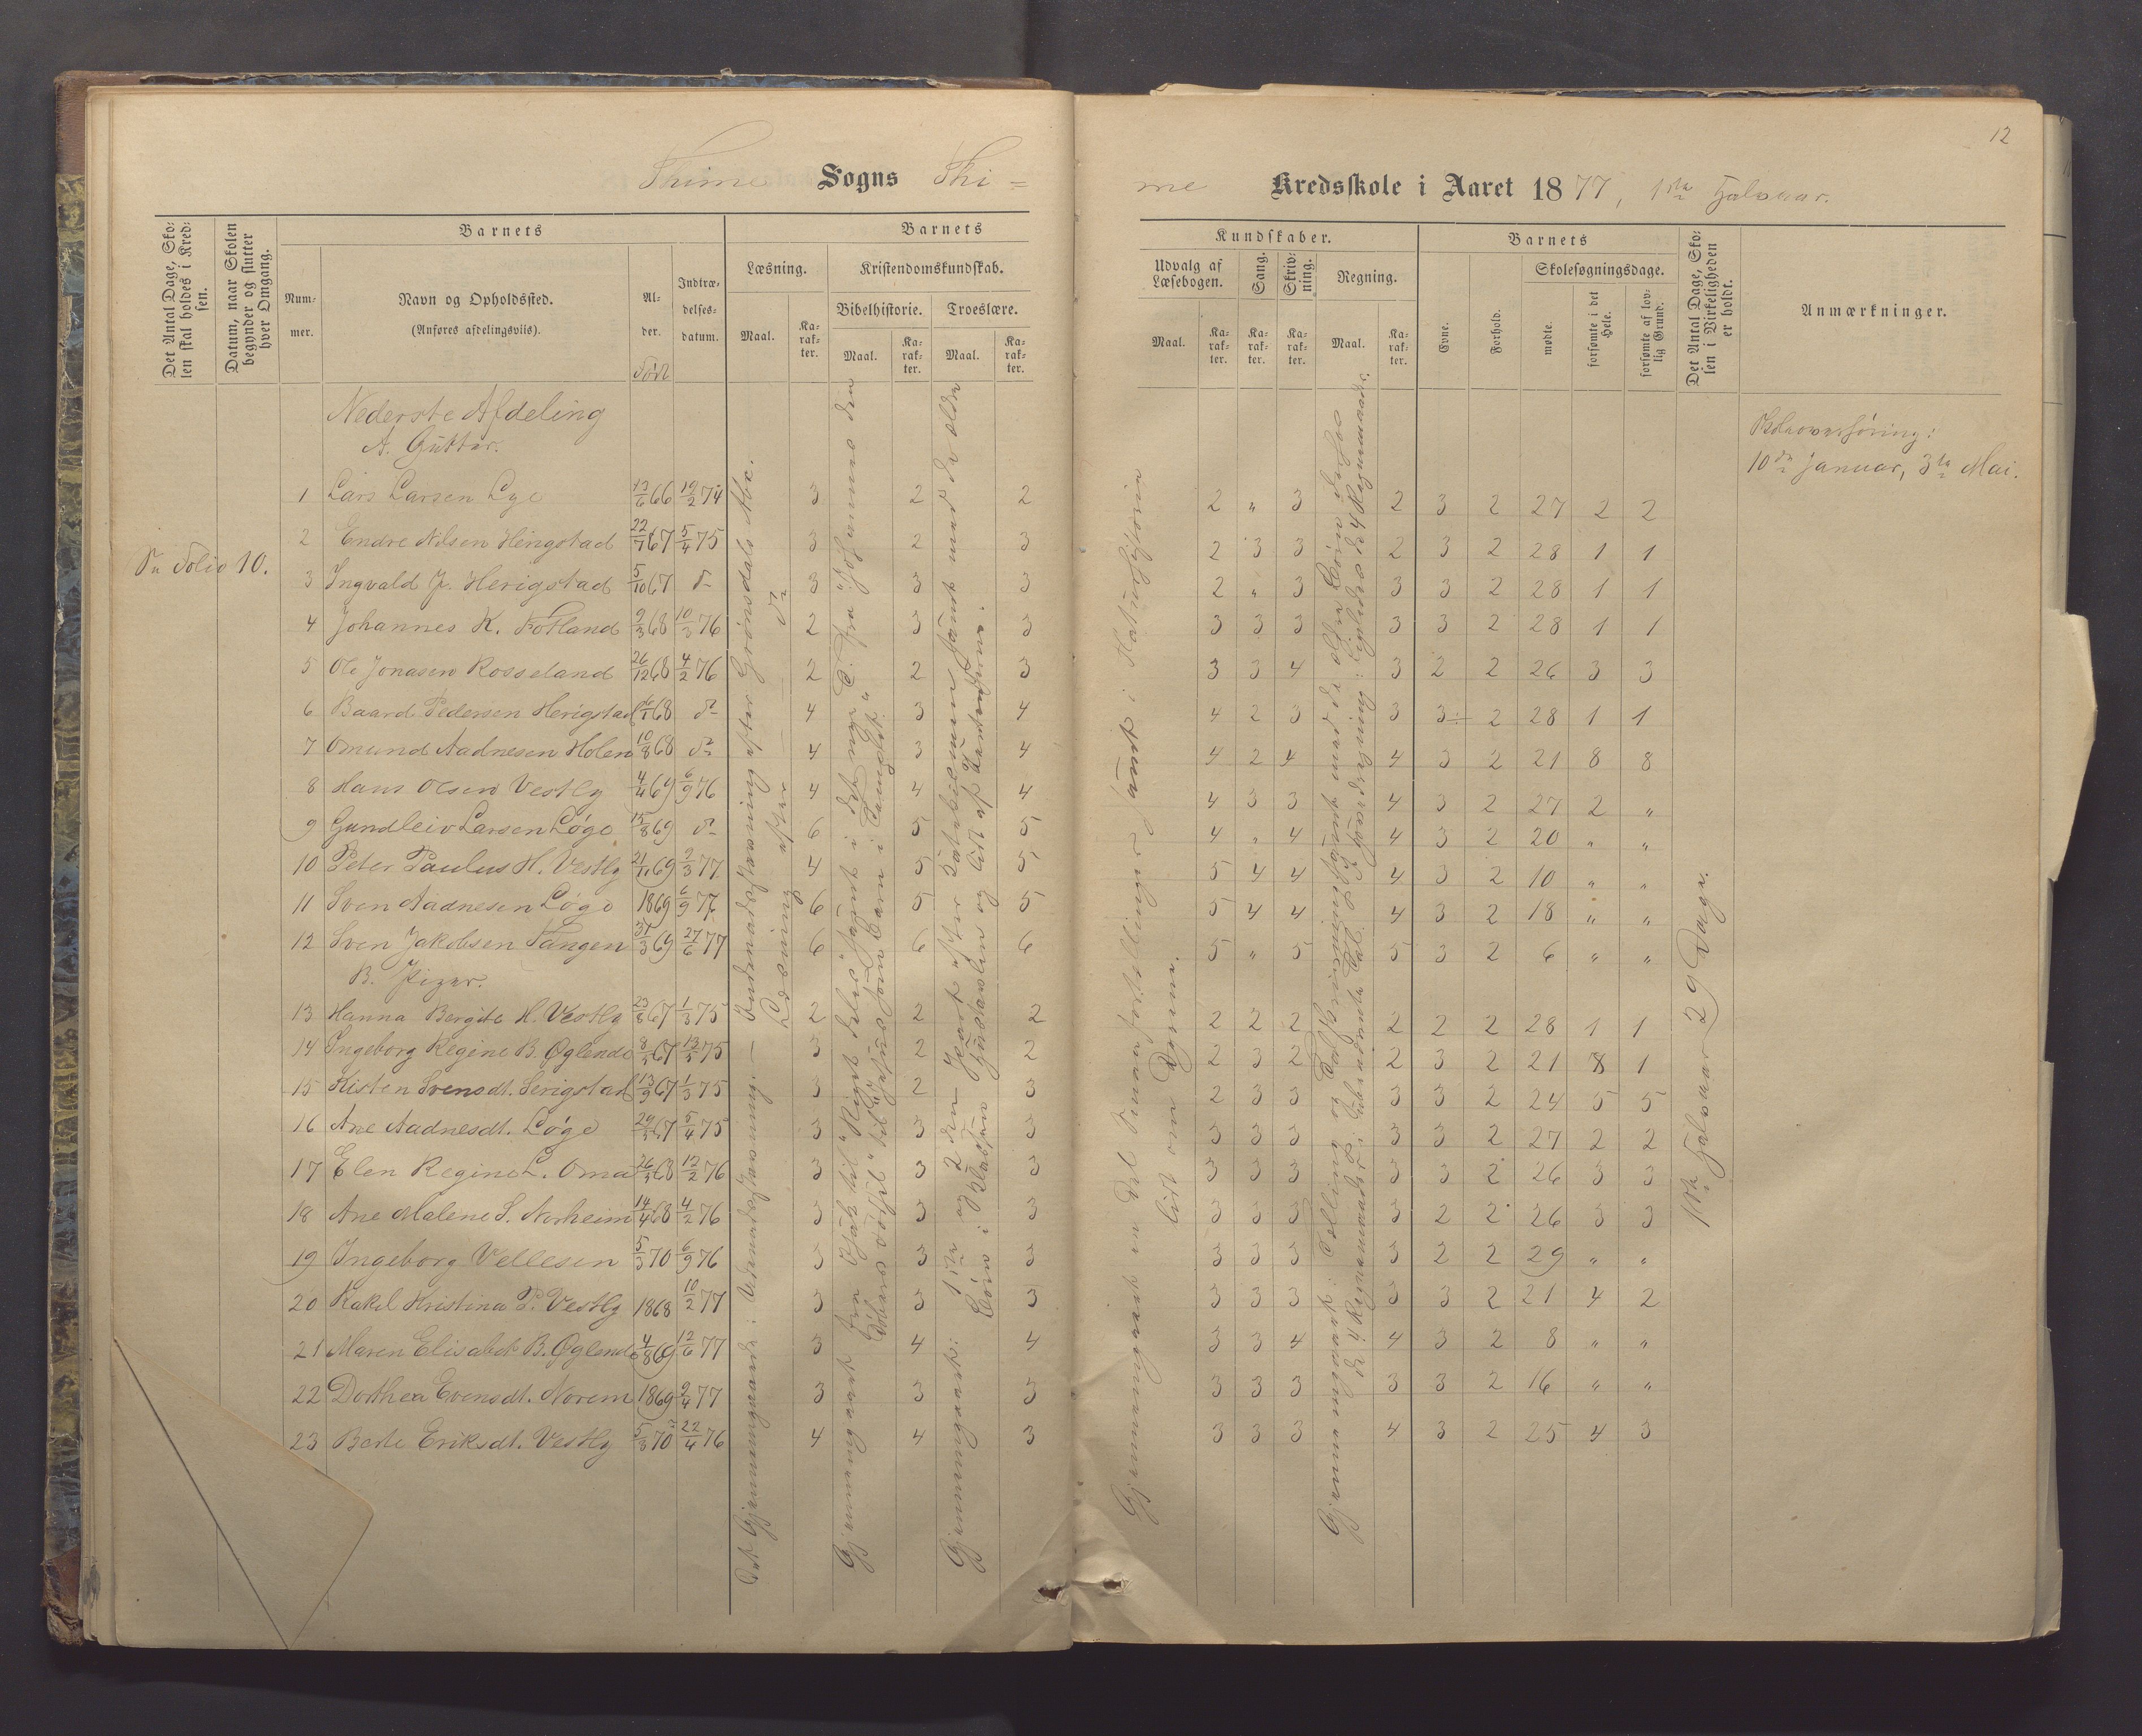 12
Thime Sogns Thi =
me Kredsskole i Aaret 1877, 1ste Halvaar.
Det Antal Dage, Skolen skal holdes i Kredsen.
Datum, naar Skolen begynder og slutter hver Omgang.
Barnets
Nummer.
Navn og Opholdssted.
(Anføres afdelingsviis).
Alder.
Født
Indtrædelsesdatum.
Barnets
Læsning.
Maal.
Karakter.
Kristendomskundskab.
Bibelhistorie.
Maal.
Karakter.
Troeslære.
Maal.
Karakter.
Kundskaber.
Udvalg af Læsebogen.
Maal.
Karakter.
Sang.
Karakter.
Skrivning.
Karakter.
Regning.
Maal.
Karakter.
Barnets
Evne.
Forhold.
Skolesøgningsdage.
mødte.
forsømte i det Hele.
forsømte af lovlig Grund.
Det Antal Dage, Skolen i Virkeligheden er holdt.
Anmærkninger.
Nederste Afdeling
A. Gutter.
10de Januar, 3die Mai.
1 Lars Larsen Lye 13/6 66 19/2 74 3 2 2 2 " 3 2 3 2 27 2 2
2 Endre Nilsen Herigstad 22/7 67 5/4 75 3 2 3 2 3 3 2 3 2 28 1 1
Se Folio 10.
3 Ingvald P. Herigstad 5/10 67 do 3 3 3 2 " 3 3 3 2 28 1 1
4 Johannes K. Fotland 9/3 68 10/3 76 2 3 3 3 3 3 3 3 2 28 1 1
5 Ole Jonasen Rosseland 26/12 68 4/2 76 2 2 3 3 3 4 3 2 2 26 3 3
6 Baard Pedersen Herigstad 6/1 68 do 4 3 4 4 2 3 3 3÷ 2 28 1 1
7 Omund Aadnesen Holen 10/8 68 do 4 3 4 4 2 4 4 3 2 21 8 8
8 Hans Olsen Vestly 4/4 69 6/9 76 4 4 4 4 3 3 4 3 2 27 2 "
9 Gundleiv Larsen Løge 15/8 69 do 6 5 5 4 " 4 4 3 2 20 " "
10 Peter Paulus H. Vestly 21/11 69 9/3 77 4 5 5 5 4 4 4 3 2 10 " "
11 Sven Aadnesen Løge 1869 6/9 77 6 5 5 5 4 4 4 3 2 18 " "
12 Sven Jakobsen Tangen 31/3 69 27/6 77 6 6 6 5 " 5 5 3 2 6 " "
B. Piger.
13 Hanna Bergite H. Vestly 23/8 67 1/3 75 2 2 2 2 2 2 2 2 2 28 1 1
14 Ingeborg Regine B. Øglende 8/3 67 13/3 75 3 2 2 2 3 2 2 3 2 21 8 1
15 Kisten Svensdt. Serigstad 13/9 67 1/3 75 3 2 3 2 3 3 3 3 2 24 5 5
16 Ane Aadnesdt. Løge 29/3 67 5/4 75 3 3 3 3 3 3 3 3 2 27 2 2
17 Elen Regine L. Oma 26/3 68 12/2 76 3 3 3 3 3 3 3 3 2 26 3 3
18 Ane Malene S. Norheim 14/4 68 4/2 76 3 3 3 3 3 3 3 2 2 26 3 3
19 Ingeborg Vellesen 5/3 70 6/9 76 3 3 3 3 3 3 3 2 2 29 " "
20 Rakel Kristina P. Vestly 1868 10/2 77 3 3 3 3 3 3 3 3 2 21 4 2
21 Maren Elisabet B. Øglende 4/8 69 12/6 77 3 4 4 3 3 4 4 3 2 8 " "
22 Dorthea Evensdt. Norem 1869 9/4 77 3 3 3 3 3 3 3 3 2 16 " "
23 Berte Eriksdt. Vestly 5/3 70 22/4 76 4 4 3 3 3 3 4 3 2 25 4 3
Det Gjennemgaaede: Udenadslæsning. — Indenadslæsning efter Gjørnsdals Abc.
Læsning efter do
Gjennemgaaet
Gjennemgaaet: 1ste og 2den Part efter Katekismen samt med de ældre
Gjennemgaaet en Del Smaafortællinger, samt i Naturhistorie
lidt om Dyrene.
1ste Halvaar 29 Dage.